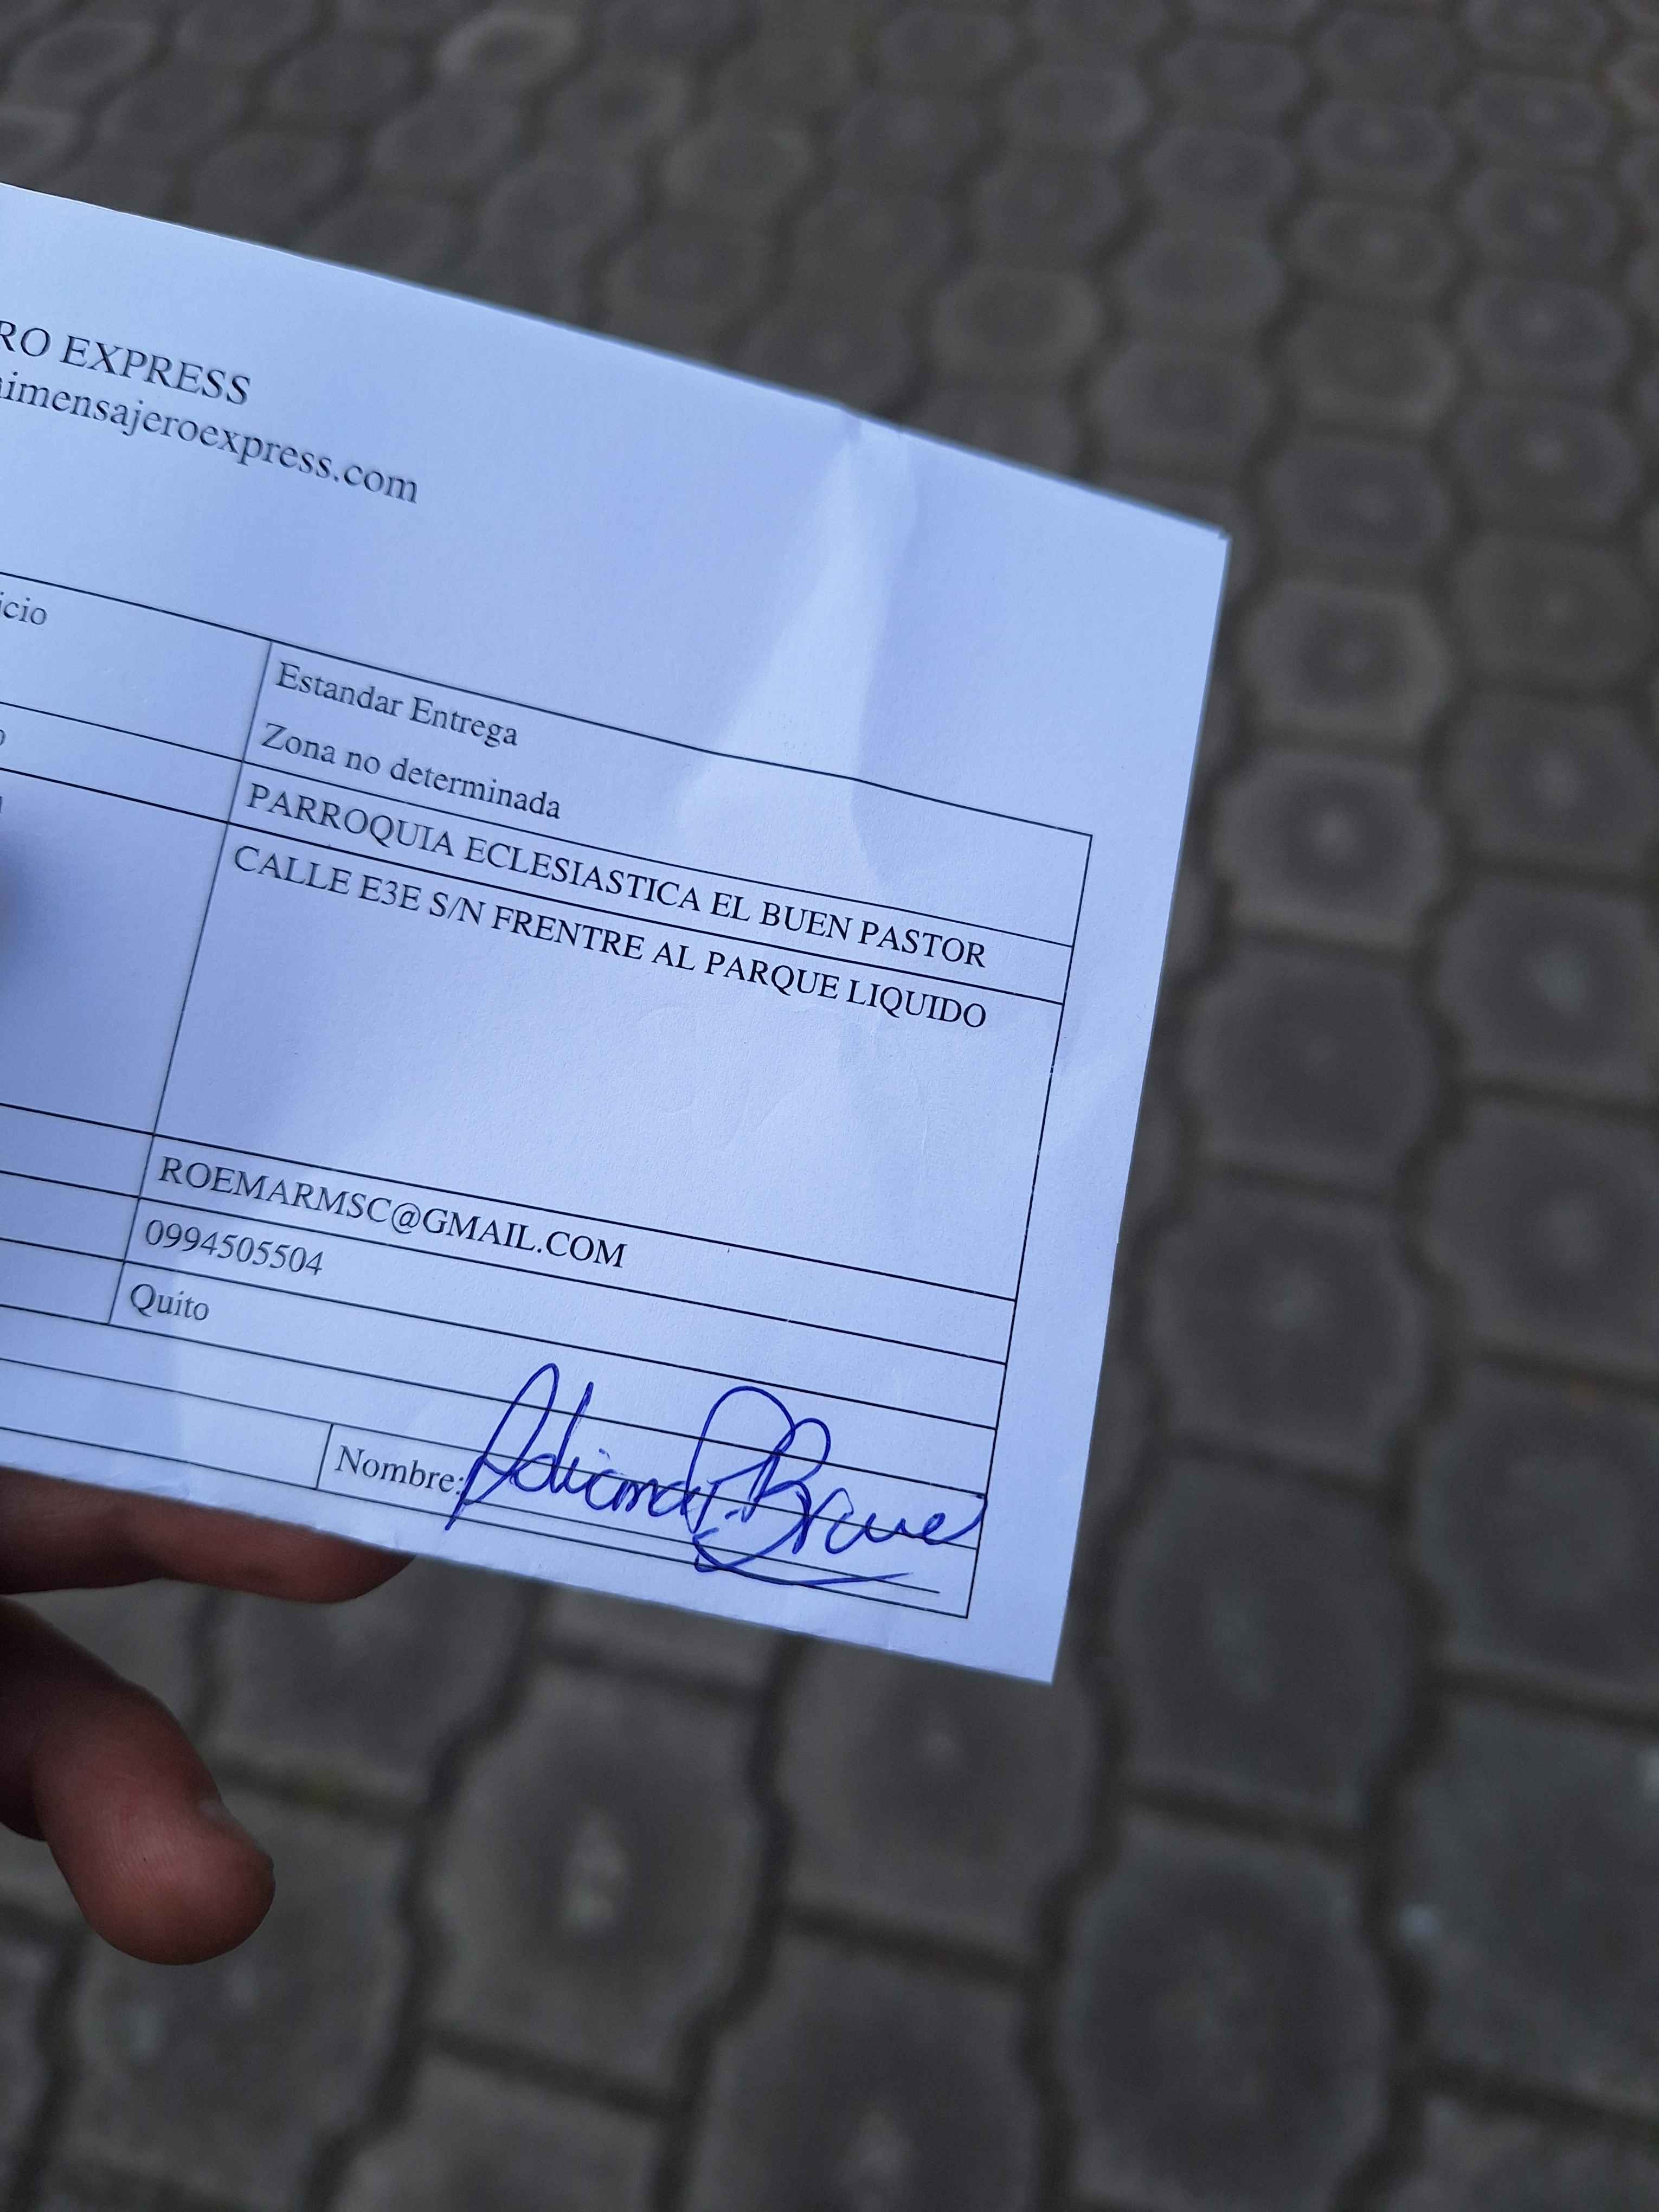 RO EXPRESS
imensajeroexpress.com
icio
Estandar Entrega
Zona no determinada
PARROQUIA ECLESIASTICA EL BUEN PASTOR
CALLE E3E S/N FRENTRE AL PARQUE LIQUIDO
ROEMARMSC@GMAIL.COM
0994505504
Quito
Nombre: